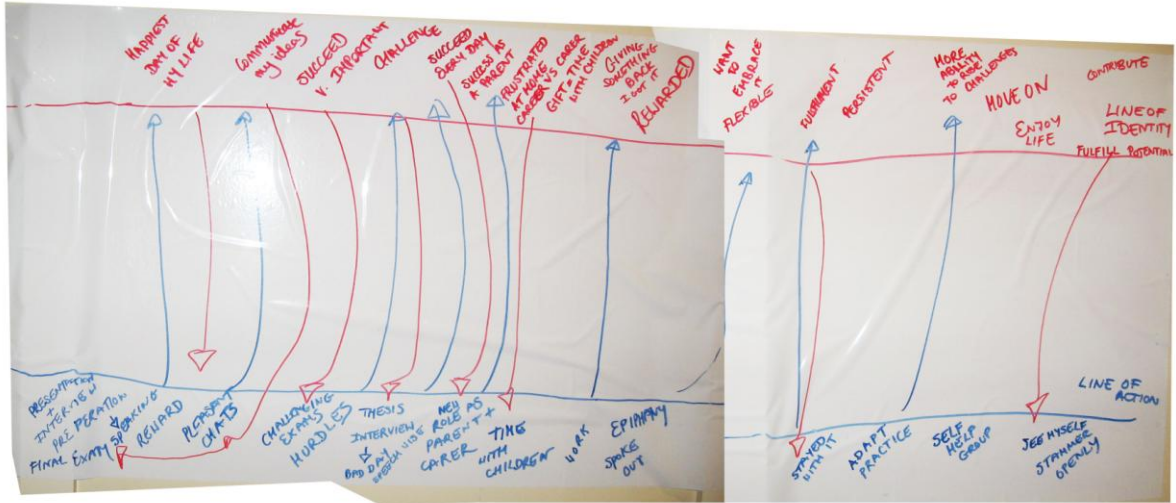 HAPPIEST
DAY OF
MY LIFE
COMMUNICATE
my ideas
SUCCEED
V. IMPORTANT
CHALLENGE
SUCCEED
EVERY DAY
SUCCESS AS
A PARENT
FRUSTRATED
AT HOME
CAREER VS CARER
GIFT = TIME
WITH CHILDREN
GIVING
SOMETHING
BACK
I GOT IT
REWARDED
WANT
TO
EMBRACE
IT
FLEXIBLE
FULFILMENT
PERSISTENT
MORE
ABILITY
TO RISE
TO CHALLENGES
MOVE ON
ENJOY
LIFE
CONTRIBUTE
LINE OF
IDENTITY
FULFILL POTENTIAL
PRESENTATION
+
INTERVIEW
PREPERATION
FINAL EXAM
SPEAKING
REWARD
PLEASENT
CHATS
CHALLENGING
EXAMS
HURDLES
THESIS
INTERVIEW
BAD DAY
SPEECH WISE
NEW
ROLE AS
PARENT +
CARER
TIME
WITH
CHILDREN
WORK
EPIPHANY
SPOKE
OUT
STAYED
WITH IT
ADAPT
PRACTICE
SELF
HELP
GROUP
SEE MYSELF
STAMMER
OPENLY
LINE OF
ACTION